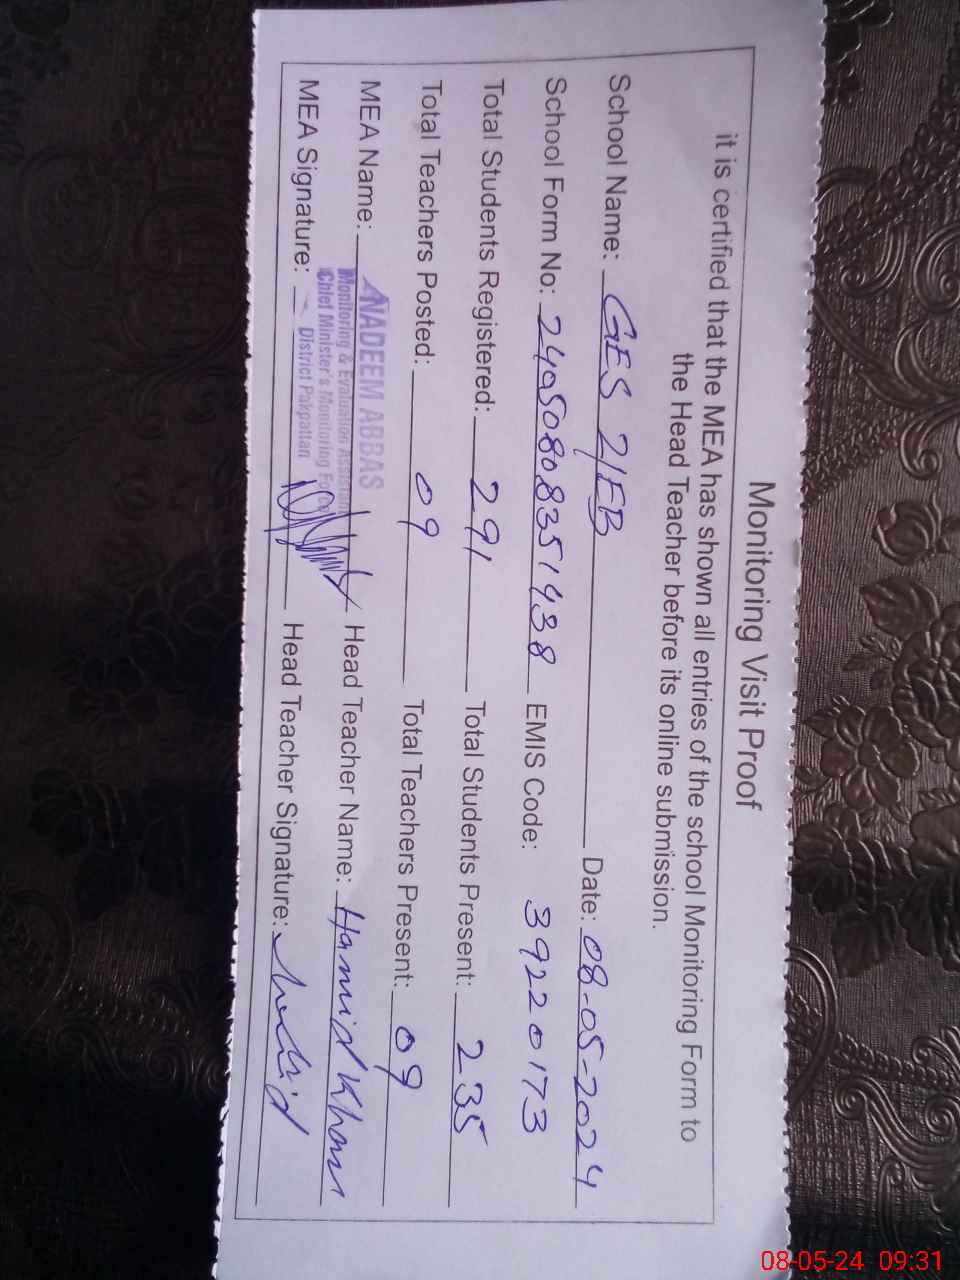 Monitoring Visit Proof
it is certified that the MEA has shown all entries of the school Monitoring Form to
the Head Teacher before its online submission.
School Name: GES 2/EB Date: 08-05-2024
School Form No: 24050808351438 EMIS Code: 39220173
Total Students Registered: 291 Total Students Present: 235
Total Teachers Posted: 09 Total Teachers Present: 09
MEA Name: NADEEM ABBAS Head Teacher Name: Hamid Khan
Monitoring & Evaluation Assistant
Chief Minister's Monitoring Force
District Pakpattan
MEA Signature: Head Teacher Signature:
08-05-24 09:31